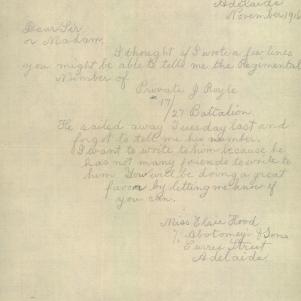 Adelaide
November 191
Dear Sir
or Madam.
I thought if I wrote a few lines
you might be able to tell me the Regimental
Number of
Private J Royle
17
/27 Battalion
He sailed away Tuesday last and
forgot to tell me his number.
I want to write to him because he
has not many friends to write to
him You will be doing a great
favor by letting me know if
you can.
Miss Elsie Flood
& Sons
Currie Street
Adelaide